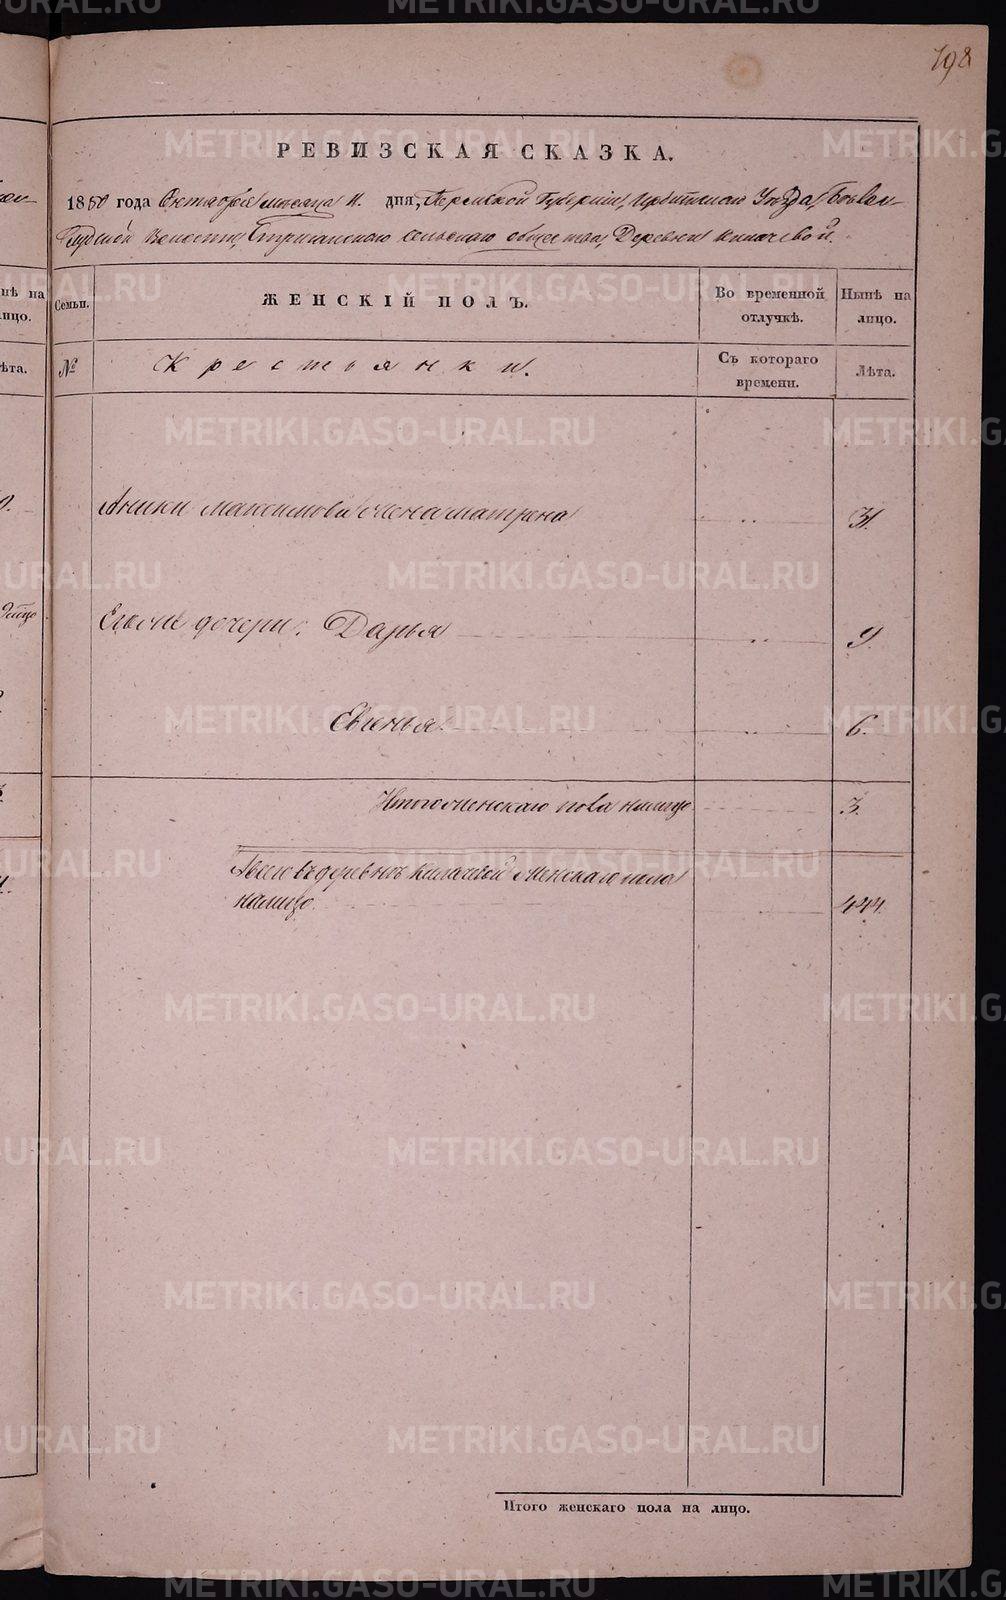 198
РЕВИЗСКАЯ СКАЗКА.
1850 года Октября месяца 11. дня, Пермской Губернии, Ирбитского Уезда,
Волости, Стриганского сельского общества, Деревни Кипачевой.
нѣ на
лицо.
ѣта.
Семьи.
ЖЕНСКІЙ ПОЛЪ.
Во временной отлучкѣ.
Нынѣ на лицо.
№
Крестьянки.
Съ котораго времени.
Лѣта.
Аники Максимова жена Матрена 31.
Его же дочери: Дарья 9.
Евгенья 6.
Итого женскаго пола налицо 3.
А всего въ деревнѣ Кипачевой женскаго пола
налицо 444.
Итого женскаго пола на лицо.
METRIKI.GASO-URAL.RU